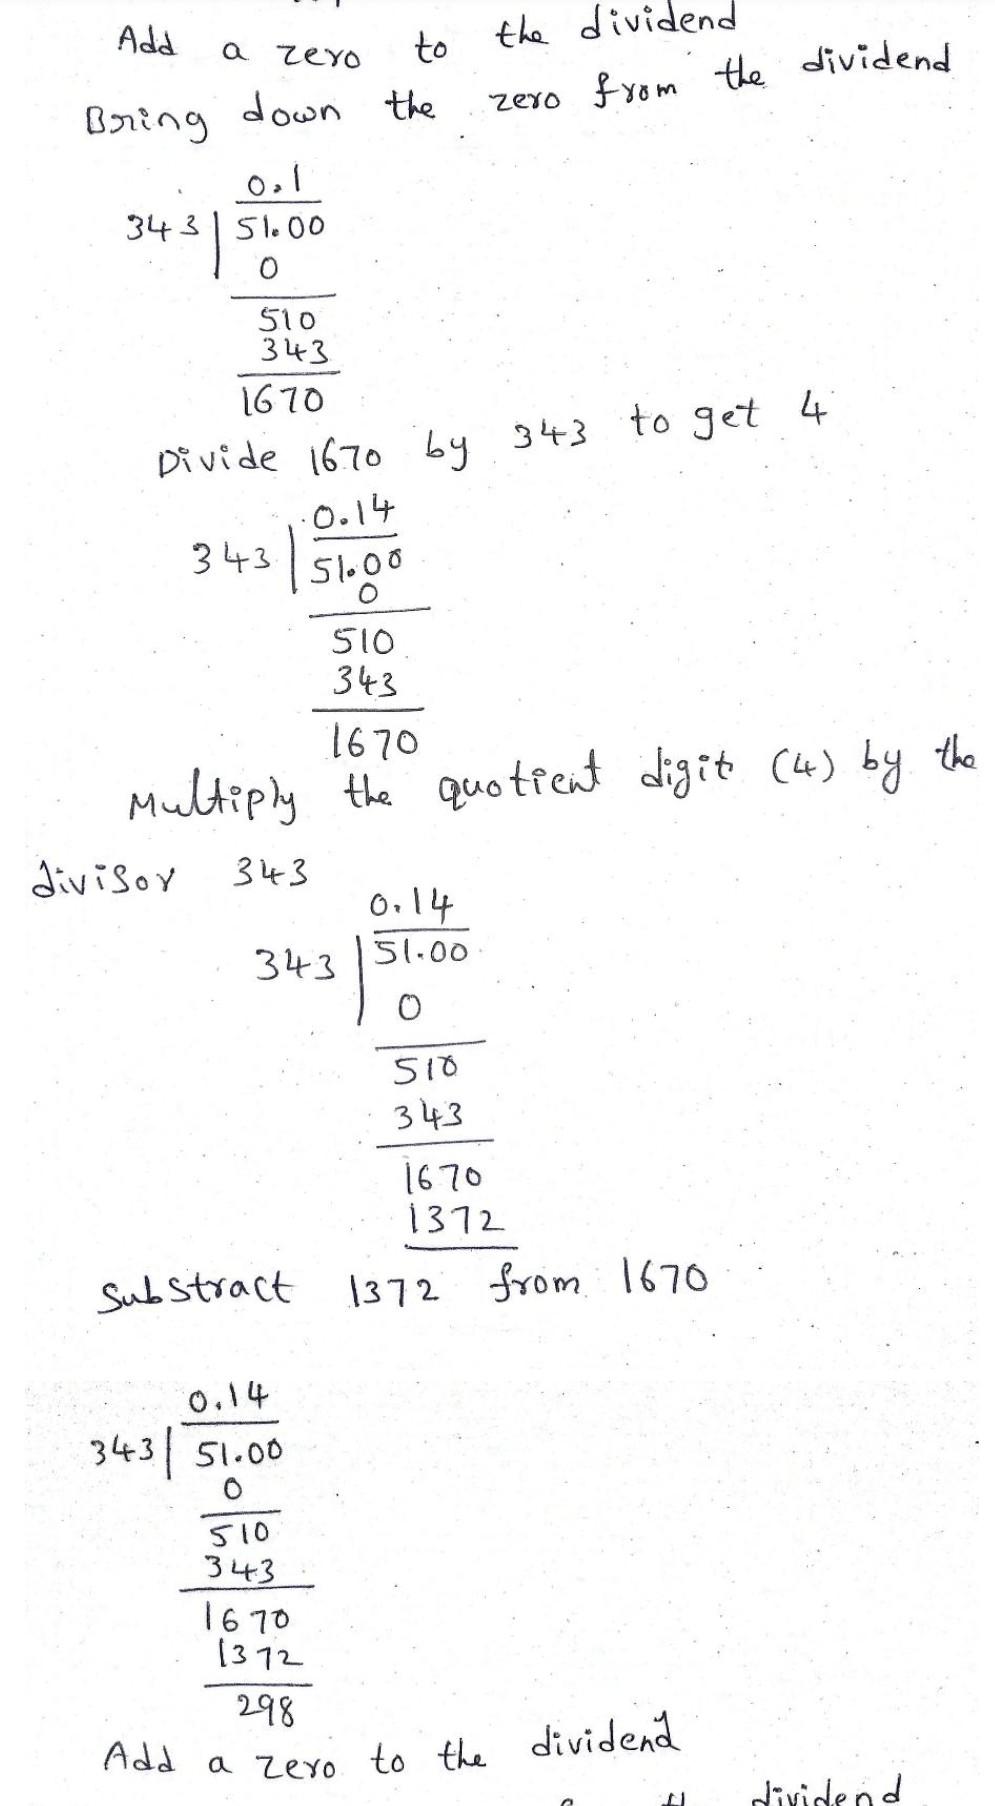 Add a zero to the dividend
Bring down the zero from the dividend
0.1
343 | 51.00
0
510
343
1670
Divide 1670 by 343 to get 4
0.14
343 | 51.00
0
510
343
1670
Multiply the quotient digit (4) by the
divisor 343
0.14
343 | 51.00
0
510
343
1670
1372
Substract 1372 from 1670
0.14
343 | 51.00
0
510
343
1670
1372
298
Add a zero to the dividend
dividend